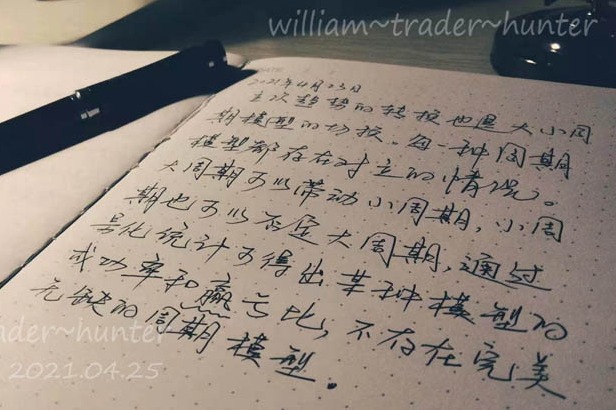 william~trader~hunter
2021年4月25日
主次趋势的转换也是大小周
期模型的切换。每一种周期
模型都存在对立的情况。
大周期可以带动小周期，小周
期也可以否定大周期，通过
量化统计可得出某种模型的
成功率和赢亏比，不存在完美
无缺的周期模型。
ader~hunter
2021.04.25